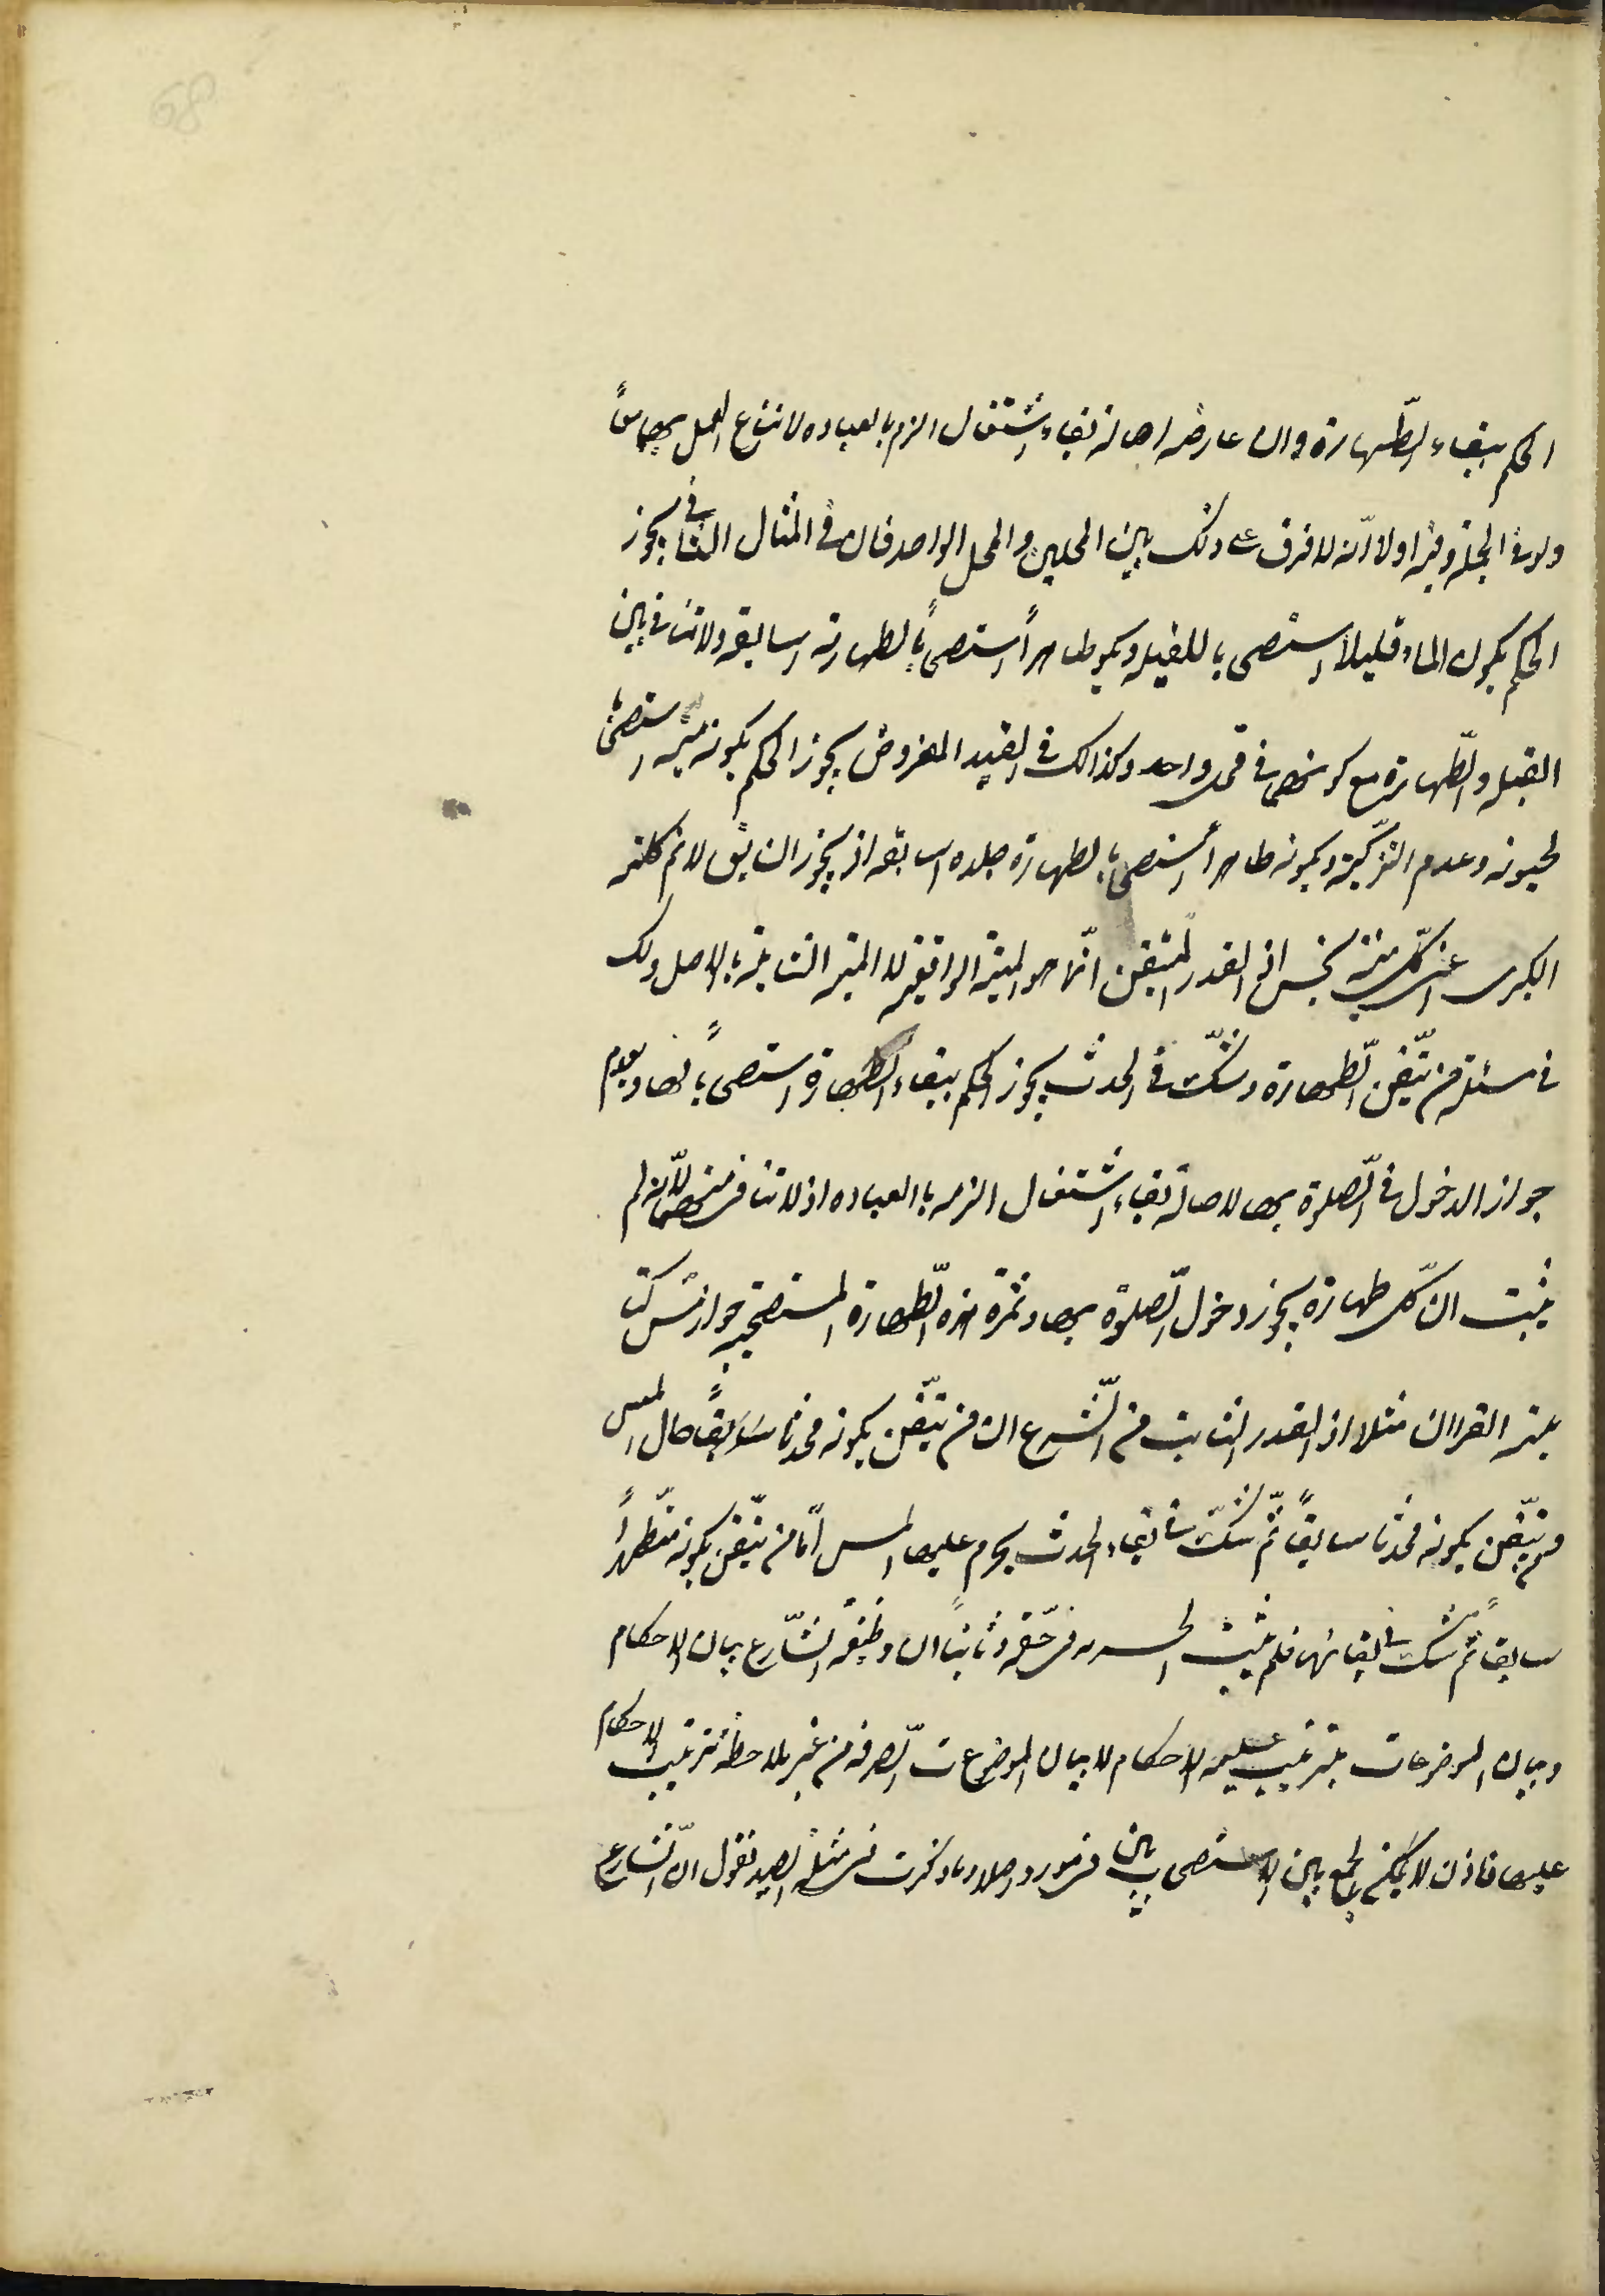 68
الحكم ببقاء الطّهارة وان عارضه اصالة بقاء اشتغال الذم بالعباده لامتناع العمل بهما معاً
ولو فى الجملة وفيه اولا انّه لا فرق فى ذلك بين المحلين والمحل الواحد فان فى المثال الثانى يجوز
الحكم بكون الماء قليلاً استصحابا للقلة وبكونه طاهراً استصحاباً لطهارته السابقه ولا تنافى بين
القلة والطّهارة مع كونهما فى محل واحد وكذالك فى الصيد المفروض يجوز الحكم بكونه ميتة استصحابا
لحيوته وعدم التزكية وبكونه طاهراً استصحابا لطهارة جلده السابقه اذ يجوز ان يق لا نم كلية
الكبرى اعنى كل ميتة نجس اذ القدر المتيقن انّما هو الميتة الواقعية لا الميتة الثابتة بالاصل وكك
فى مسئلة من تيقّن الطّهارة وشكّ فى الحدث يجوز الحكم ببقاء الطهارة استصحاباً لها وبعدم
جواز الدخول فى الصّلوة بها لاصالة بقاء اشتغال الذمه باالعباده اذ لا تنافى بينهما لانّه لم
يثبت ان كلّ طهارة يجوز دخول الصّلوة بها وثمرة هذه الطّهارة المستصحبة جواز مس كتابة
القراان مثلا اذ القدر الثابت من الشّرع ان من تيقّن بكونه محدثا سابقاً حال المس
ومن تيقّن بكونه محدثا سابقاً ثمّ شكّ فى بقاء الحدث يحرم عليهما المس امّا من تيقّن بكونه متطهّراً
سابقاً ثمّ شك فى بقائها فلم يثبت الحرمه فى حقّه وثانياً ان وظيفة الشّارع بيان الاحكام
وبيان الموضوعات بترتيب عليه الاحكام لا بيان الموضوعات الصّرفه من غير ملاحظة ترتيب الاحكام
عليها فاذن لا يمكن الجمع بين الاستصحابين فى مورد اصلا وما ذكرت فى مثلة الصيد نقول انّ الشارع